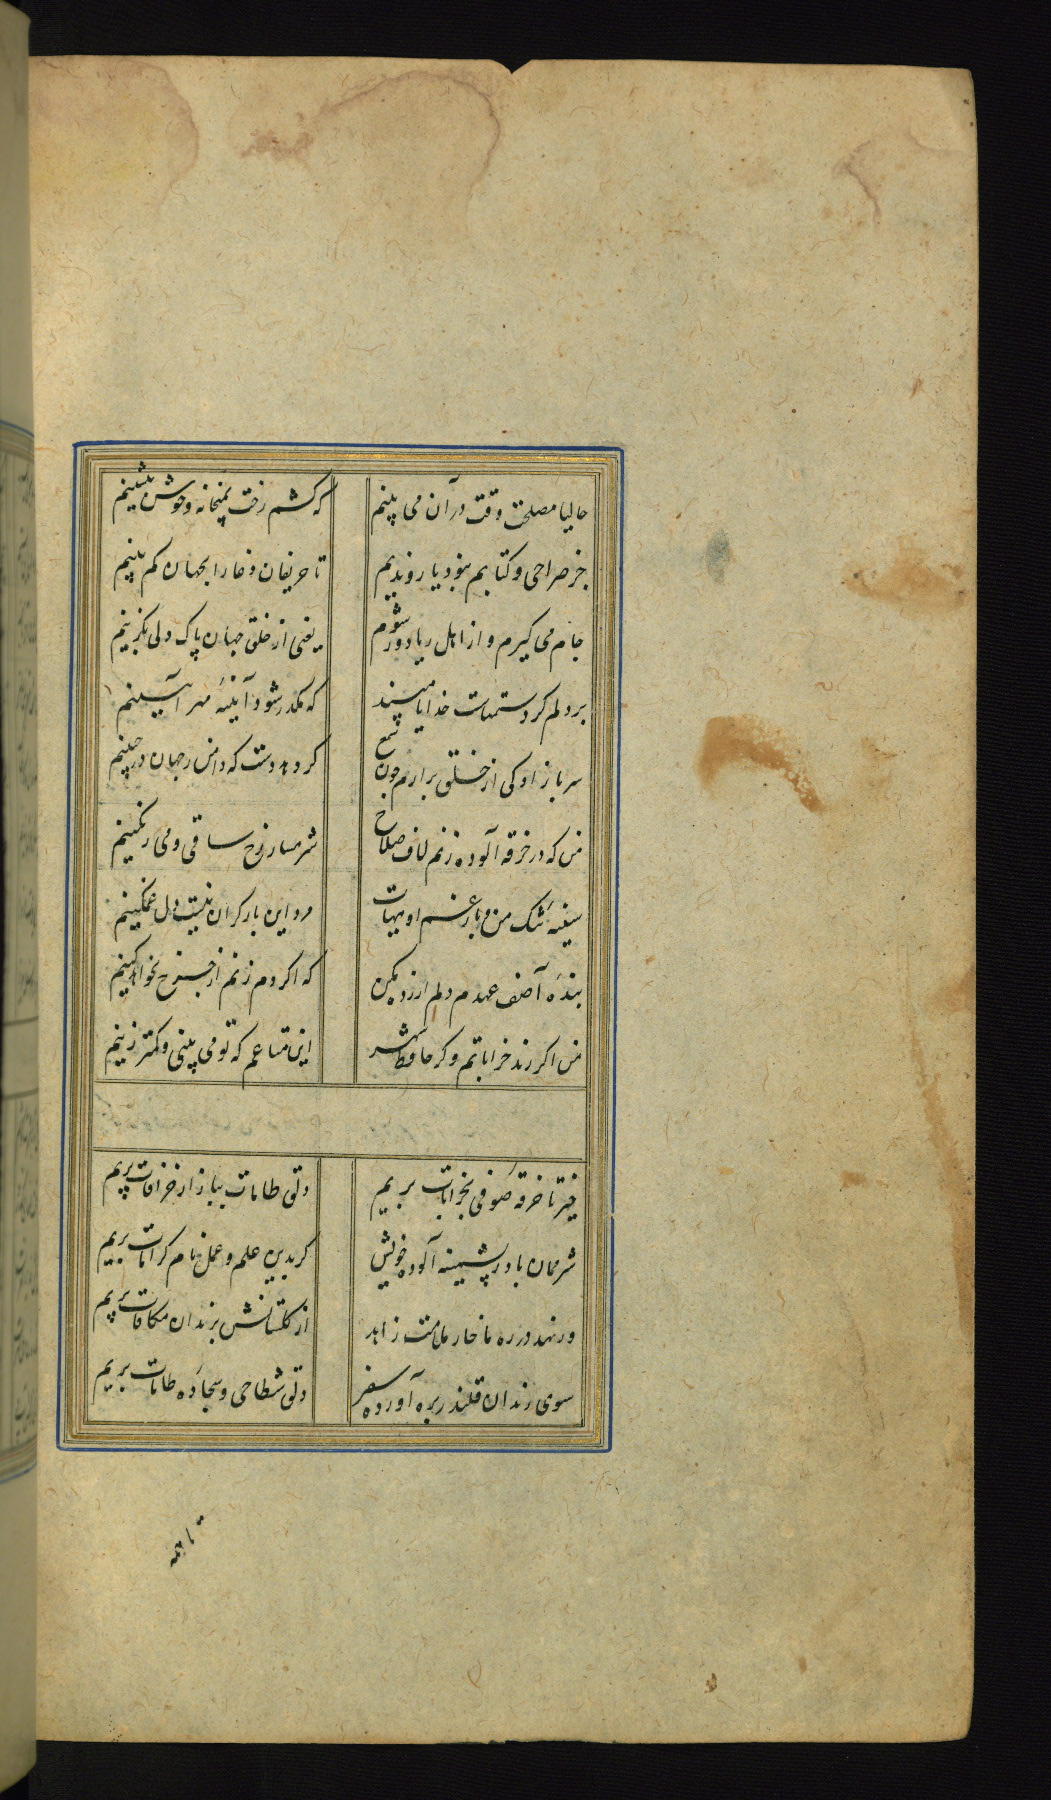 حالیا مصلحت وقت در آن می بینم که کشم رخت بمیخانه و خوش بنشینم
جز صراحی و کتابم نبود یار و ندیم تا حریفان دغا را بجهان کم بینم
جام می گیرم و از اهل ریا دور شوم یعنی از خلق جهان پاک دلی بگزینم
بر دلم گرد ستمهاست خدایا مپسند که مکدر شود آئینه مهر آیینم
سر بازادگی از خلق برارم چون شمع گر دهد دست که دامن ز جهان در چینم
من که در خرقه آلوده زنم لاف صلاح شرمسار رخ ساقی و می رنگینم
سینه تنگ من و بار غم او هیهات مرد این بار گران نیست دل غمگینم
بنده آصف عهدم دلم ازرده مکن که اگر دم زنم از چرخ بخواهد کینم
من اگر رند خراباتم و گر حافظ شهر این متاعم که تو می بینی و کمتر زینم
خیز تا خرقه صوفی بخرابات بریم دلق طامات ببازار خرافات بریم
شرممان باد ز پشمینه آلوده خویش گر بدین علم و عمل نام کرامات بریم
ور نهد در ره ما خار ملامت زاهد از گلستانش بزندان مکافات بریم
سوی رندان قلندر بره آورد سفر دلق شطاحی و سجاده طامات بریم
تا همه